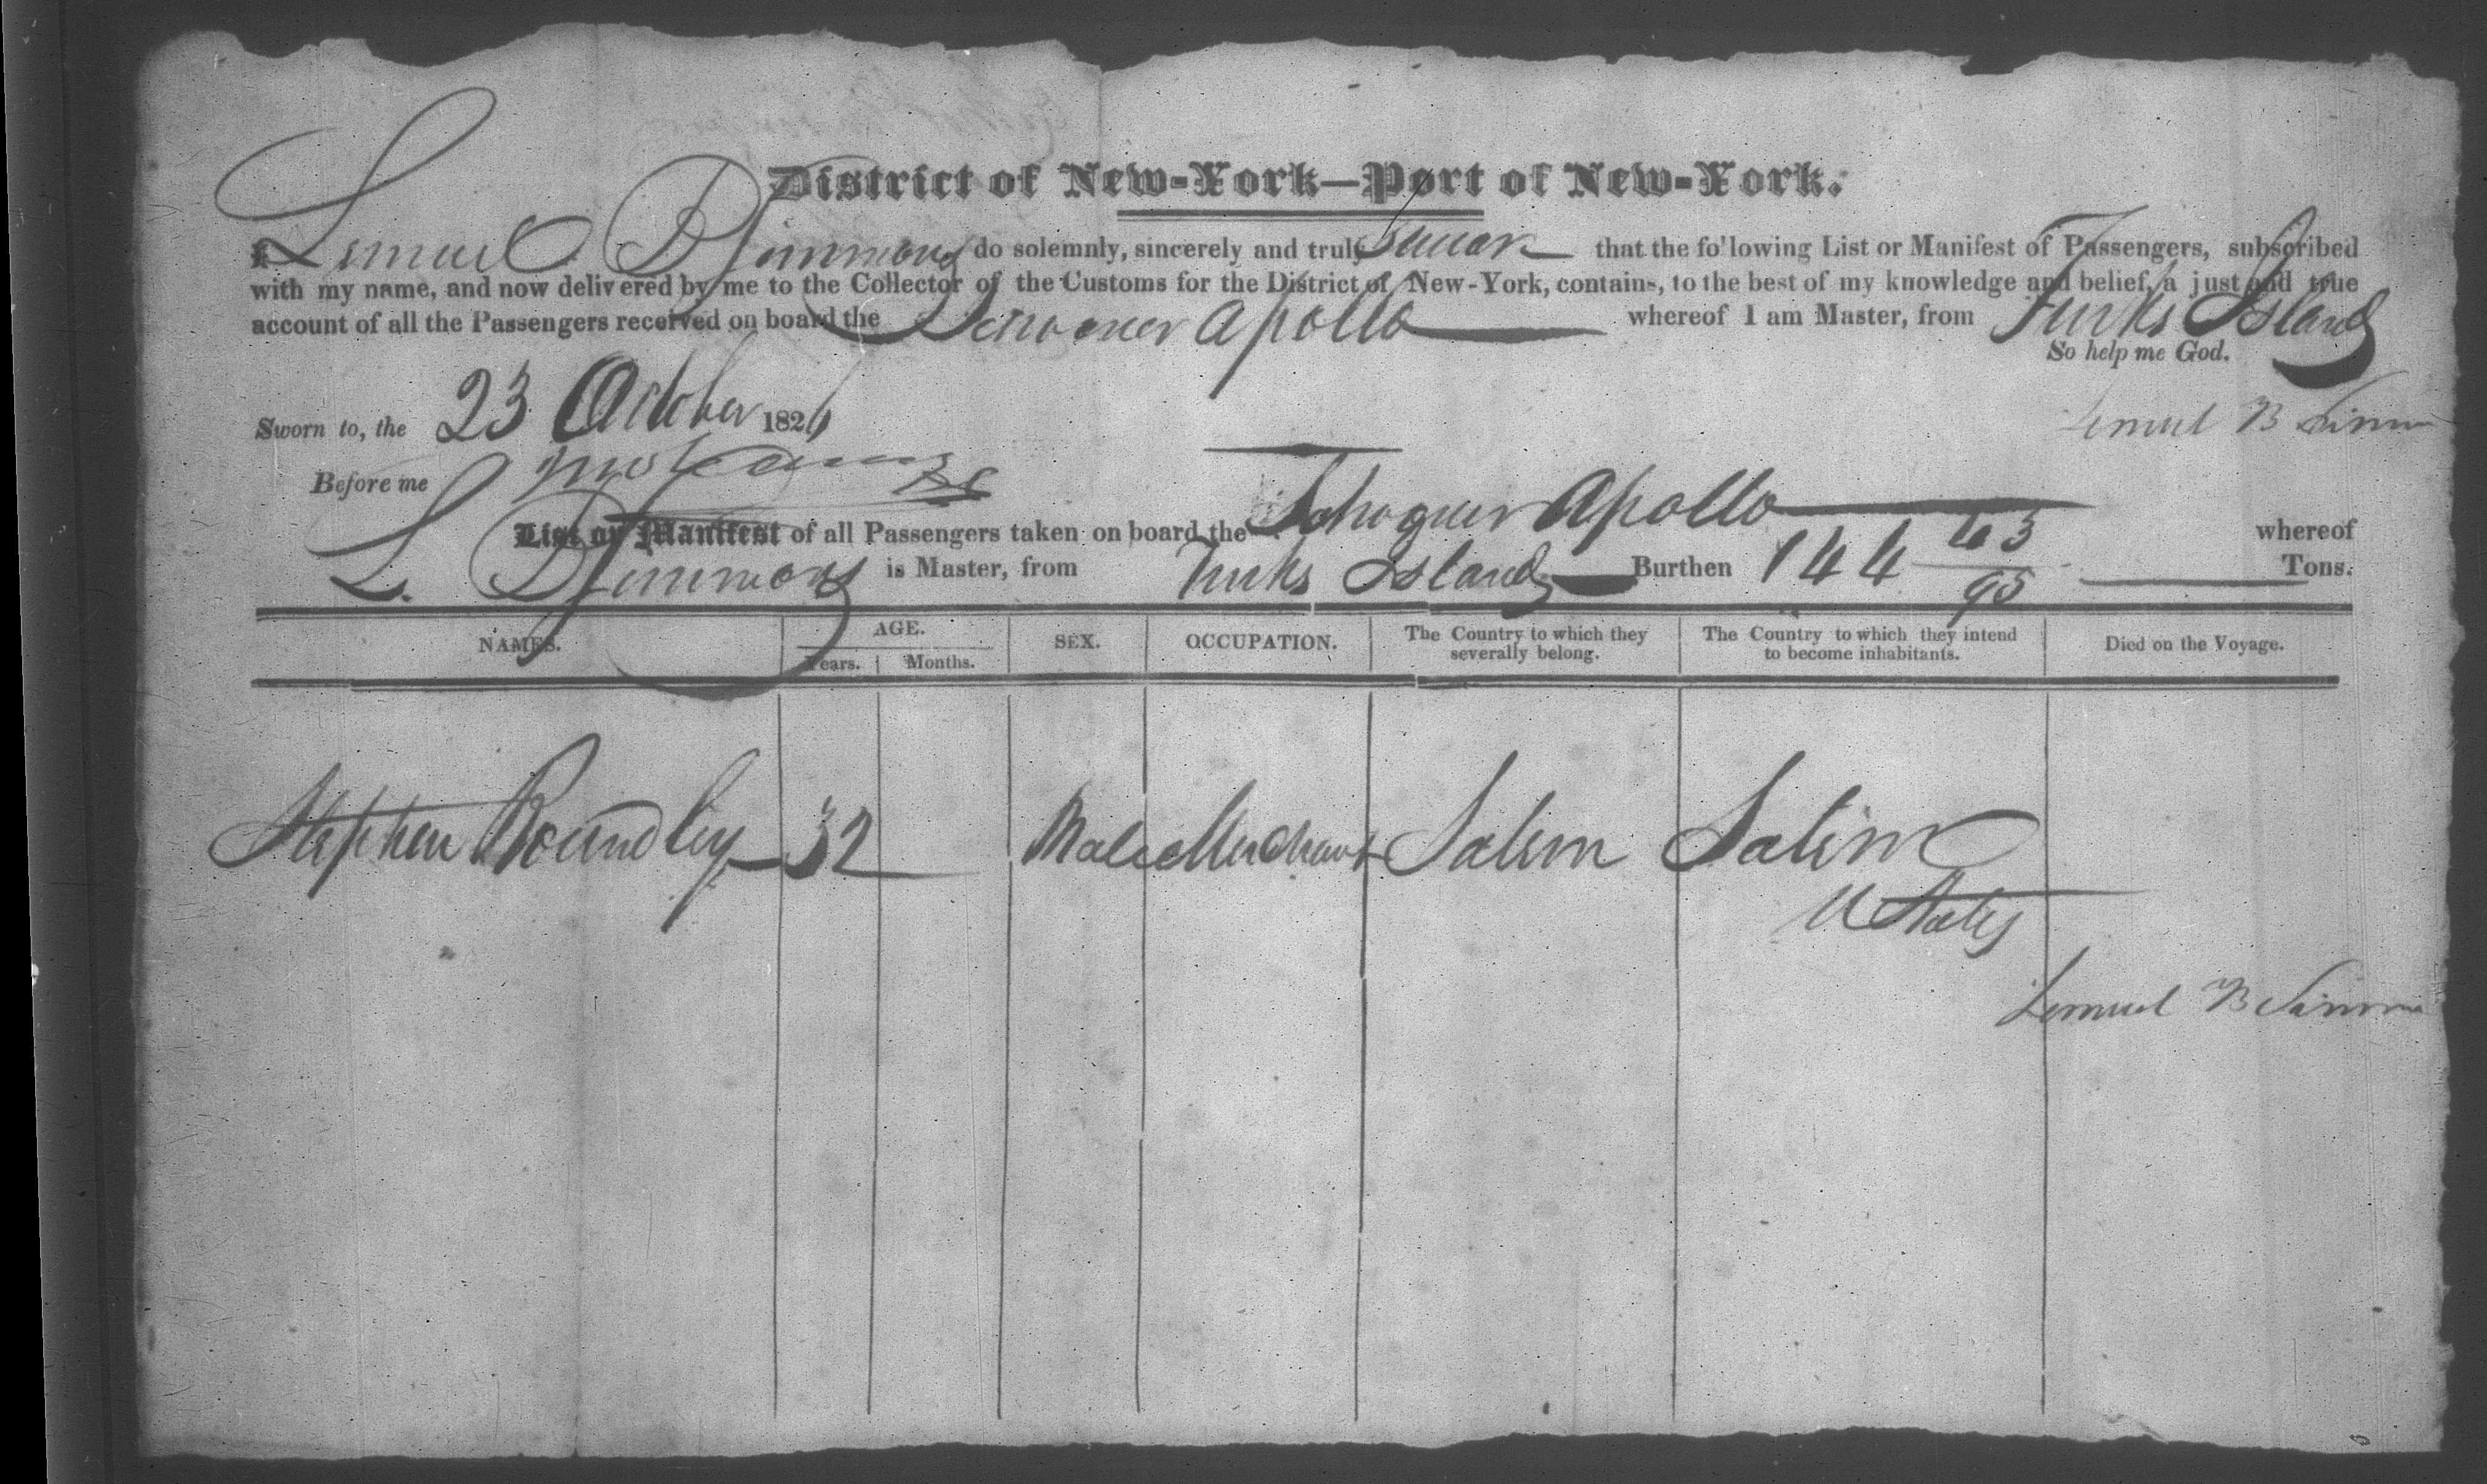 District of New-York—Port of New-York.
I Lemuel B Simmons do solemnly, sincerely and truly Swear that the following List or Manifest of Passengers, subscribed
with my name, and now delivered by me to the Collector of the Customs for the District of New-York, contains, to the best of my knowledge and belief, a just and true
account of all the Passengers received on board the Schooner Apollo whereof I am Master, from Turks Island
So help me God.
Sworn to, the 23 October 1826
Lemuel B Simm
Before me
List or Manifest of all Passengers taken on board the Schooner Apollo whereof
L. B Simmons is Master, from Turks Island Burthen 144 63/95 Tons.
NAMES. AGE. SEX. OCCUPATION. The Country to which they severally belong. The Country to which they intend to become inhabitants. Died on the Voyage.
Years. Months.
Stephen Roundley 32 Male Merchant Salem Salem
U States
Lemuel B Simm